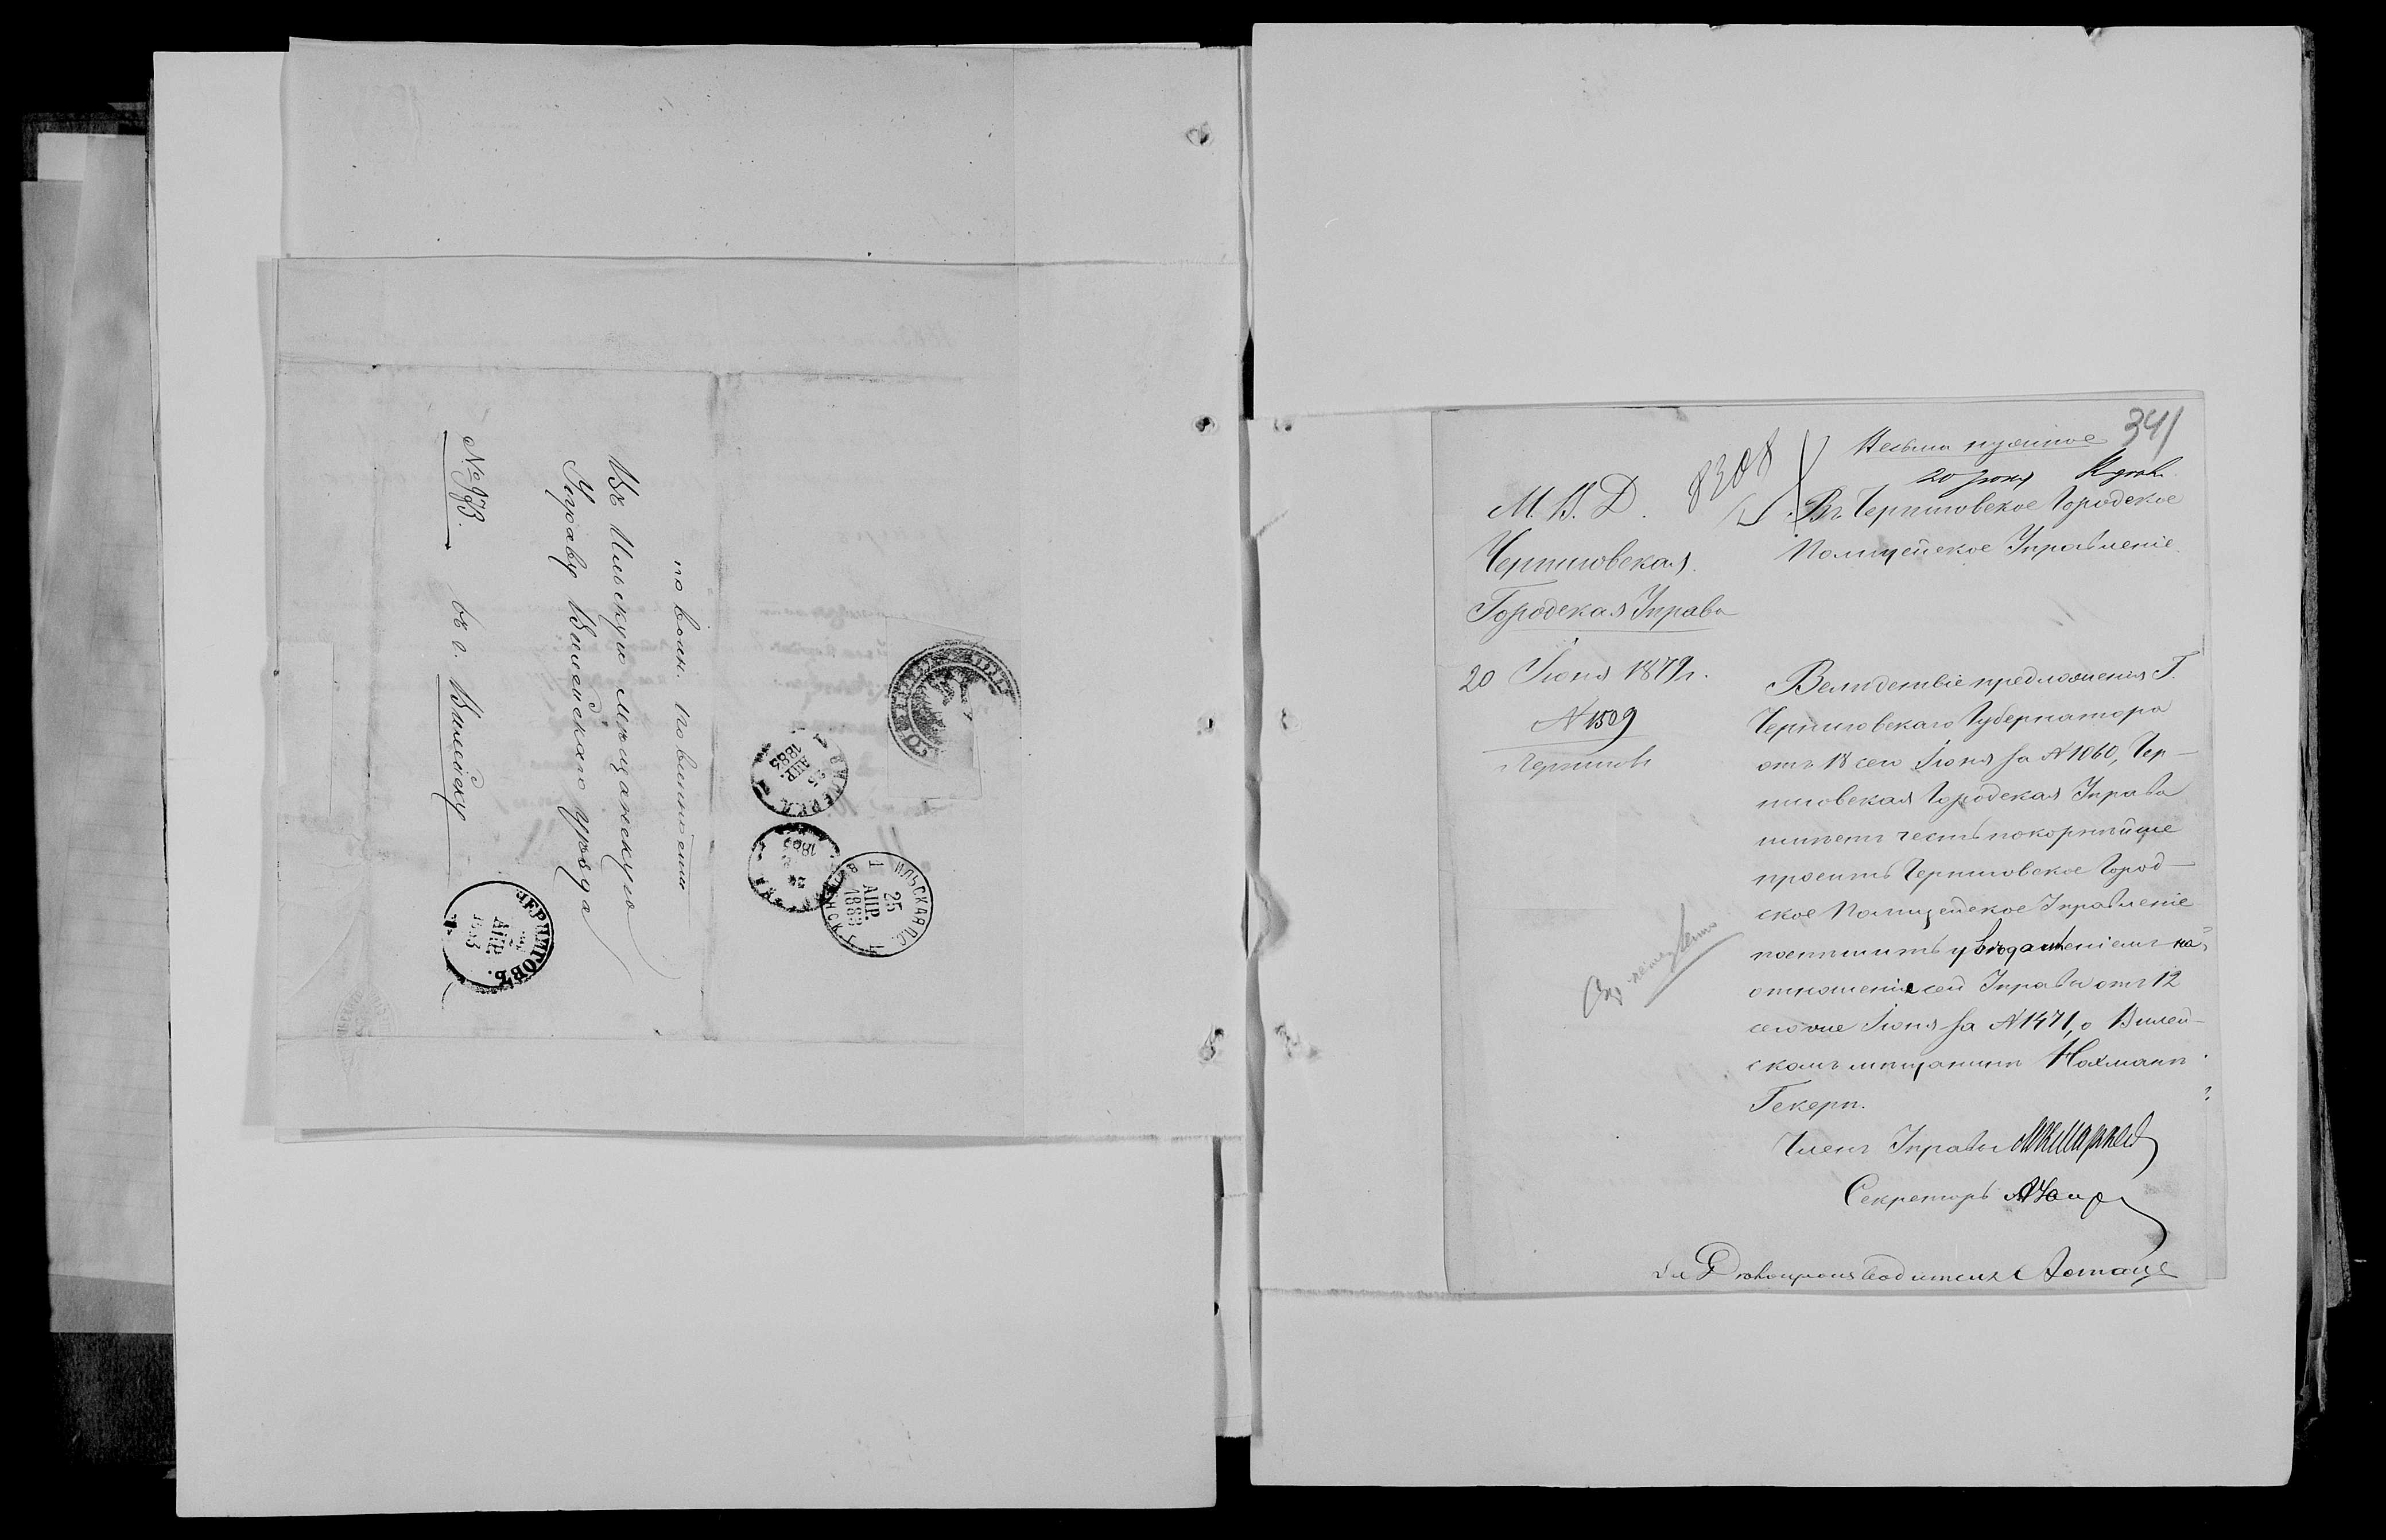 по воин. повинности
Въ Ильскую мѣщанскую
Управу Вилейскаго уѣзда
№ 973. въ г. Вилейку
ЧЕРНИГОВЪ.
АПР.
1883
25
АПР.
1883
1883
ИЛЬСКАЯ П.С.
25
АПР.
1883
341
Весьма нужное
8308
20 Июня
М. В. Д.
Черниговская
Городская Управа
20 Июня 1879 г.
№ 1509
г. Черниговъ
Въ Черниговское Городское
Полицейское Управленіе.
Вслѣдствіе предложенія Г.
Черниговскаго Губернатора
отъ 18 сего Іюня за № 1060, Чер-
ниговская Городская Управа
имѣетъ честь покорнѣйше
просить Черниговское Город-
ское Полицейское Управленіе
поспѣшить увѣдомленіемъ на
отношеніе сей Управы отъ 12
сего же Іюня за № 1471, о Вилей-
скомъ мѣщанинѣ Нахманѣ
Гекерѣ.
Членъ Управы
Секретарь
Дѣлопроизводителя